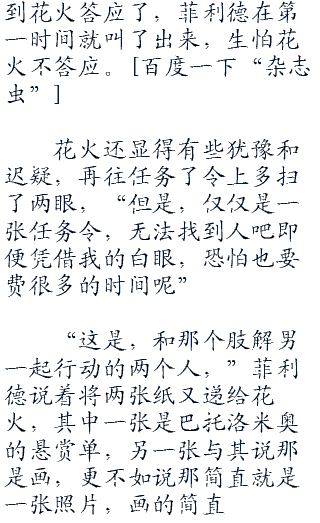 到花火答应了，菲利德在第
一时间就叫了出来，生怕花
火不答应。[百度一下“杂志
虫”]
花火还显得有些犹豫和
迟疑，再往任务了令上多扫
了两眼，“但是，仅仅是一
张任务令，无法找到人吧即
便凭借我的白眼，恐怕也要
费很多的时间呢”
“这是，和那个肢解男
一起行动的两个人，”菲利
德说着将两张纸又递给花
火，其中一张是巴托洛米奥
的悬赏单，另一张与其说那
是画，更不如说那简直就是
一张照片，画的简直